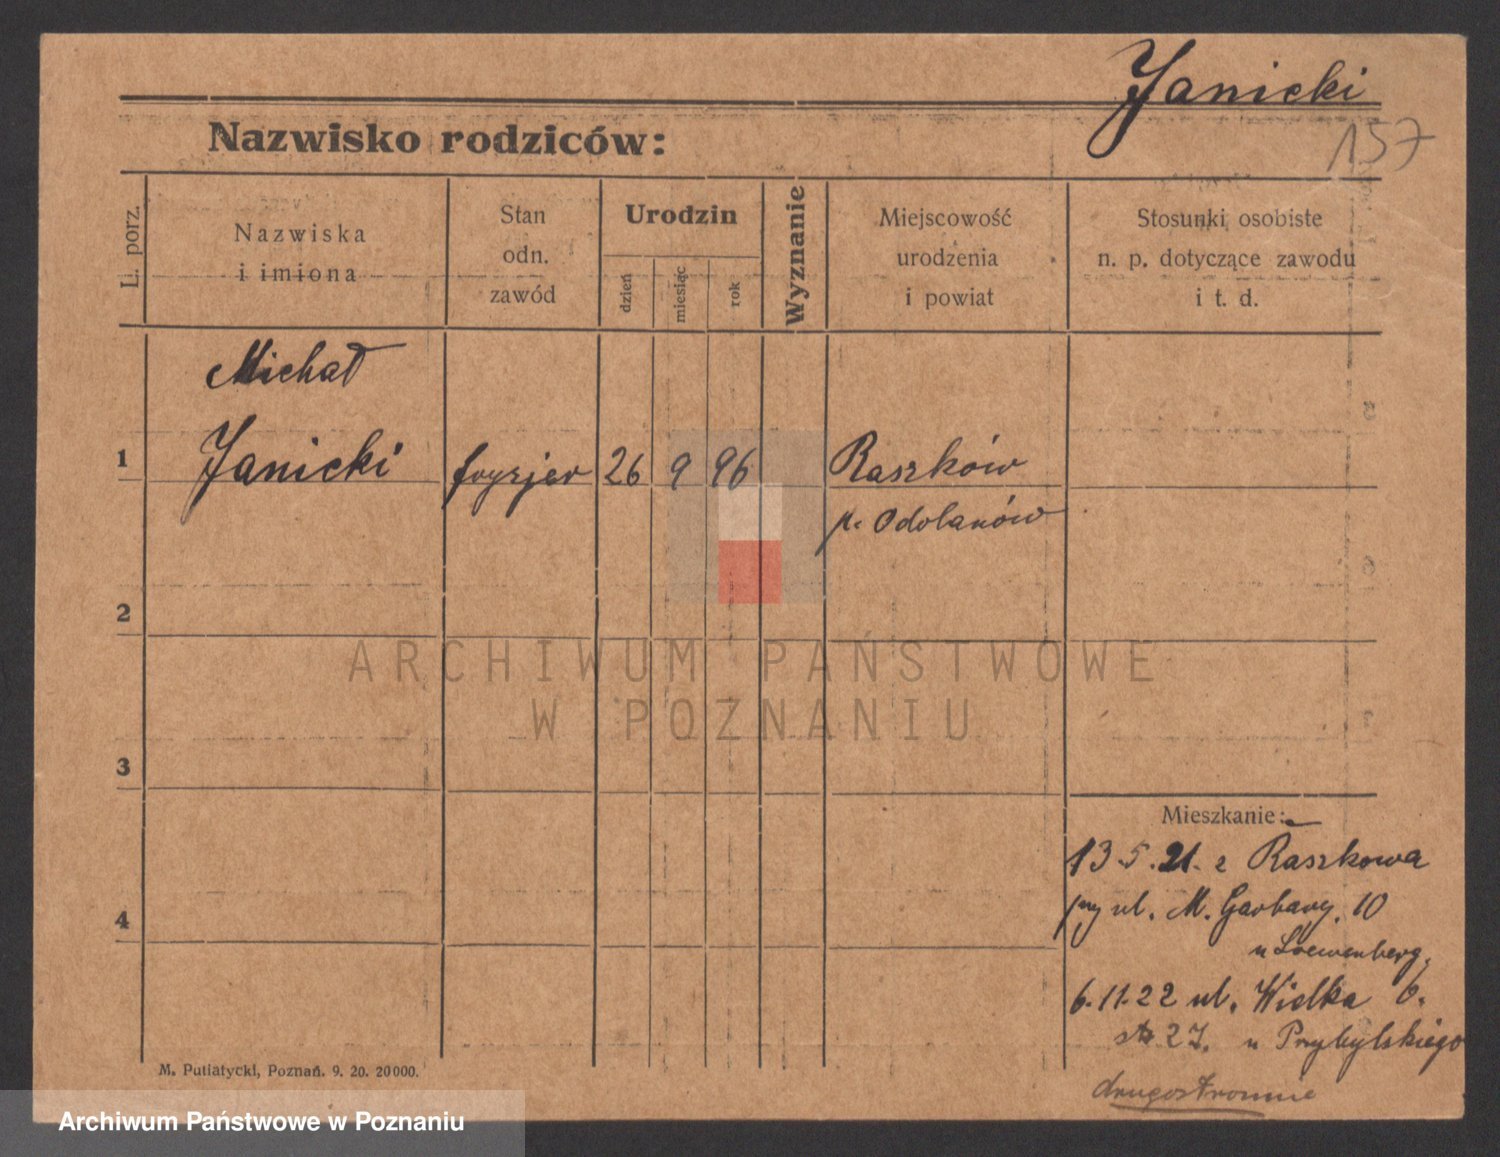 Janicki
157
Nazwisko rodziców:
Li. porz.
Nazwiska
i imiona
Stan
odn.
zawód
Urodzin
dzień
miesiąc
rok
Wyznanie
Miejscowość
urodzenia
i powiat
Stosunki osobiste
n. p. dotyczące zawodu
i t. d.
Michał
1 Janicki fryzjer 26 9 96 Raszków
p. Odolanów
2
ARCHIWUM PAŃSTWOWE
W POZNANIU
3
Mieszkanie:
13 5. 21. z Raszkowa
ul. M. Garbary. 10
u Loewenberg.
4
6.11.22 ul. Wielka 6.
27. u Przybylskiego
M. Putiatycki, Poznań. 9. 20. 20000.
drugostronnie
Archiwum Państwowe w Poznaniu